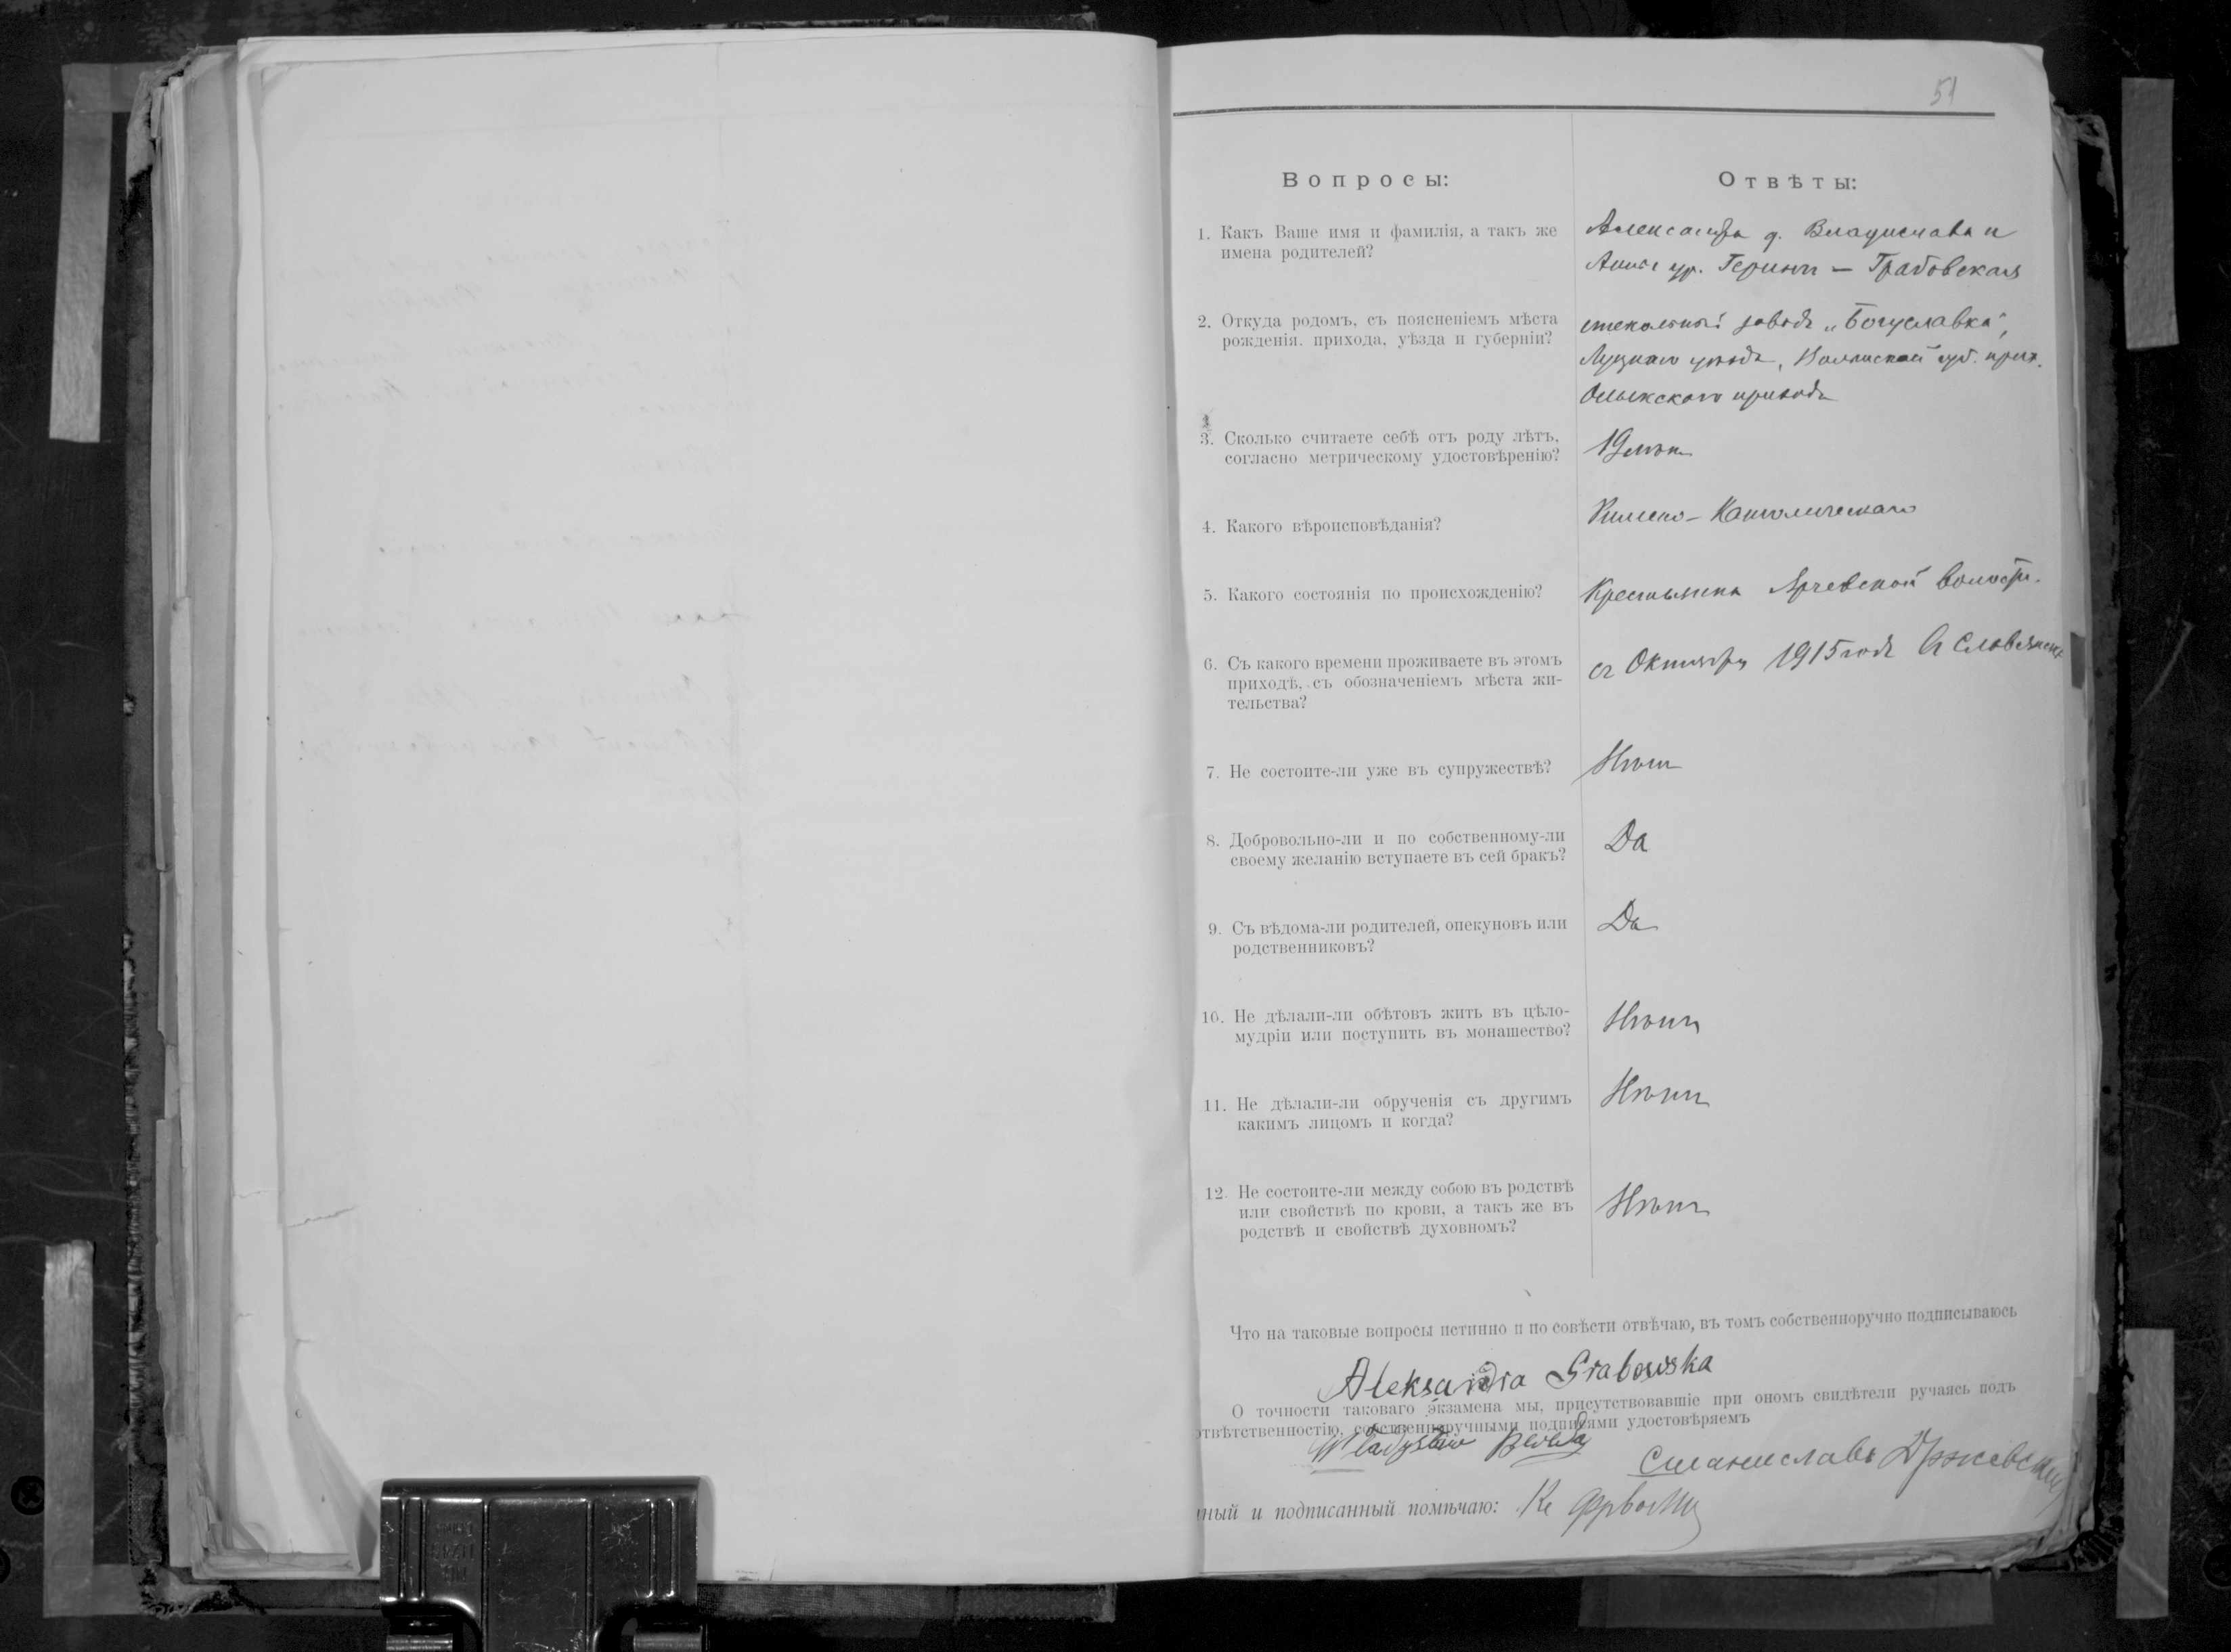 51
Вопросы:
Отвѣты:
1. Какъ Ваше имя и фамилія, а такъ же
имена родителей?
Александра д. Владислава и
Анны ур. Геринг — Грабовская
2. Откуда родомъ, съ поясненіемъ мѣста
рожденія, прихода, уѣзда и губерніи?
стекольный заводъ „Богуславка",
Луцкаго уѣзда, Волынской губ.
Олыкского прихода
3. Сколько считаете себѣ отъ роду лѣтъ,
согласно метрическому удостовѣренію?
19 лѣтъ
4. Какого вѣроисповѣданія?
Римско-Католическаго
5. Какого состоянія по происхожденію?
Крестьянка волости.
6. Съ какого времени проживаете въ этомъ
приходѣ, съ обозначеніемъ мѣста жи-
тельства?
съ Октября 1915 года
7. Не состоите-ли уже въ супружествѣ?
Нѣтъ
8. Добровольно-ли и по собственному-ли
своему желанію вступаете въ сей бракъ?
Да
9. Съ вѣдома-ли родителей, опекуновъ или
родственниковъ?
Да
10. Не дѣлали-ли обѣтовъ жить въ цѣло-
мудріи или поступить въ монашество?
Нѣтъ
11. Не дѣлали-ли обрученія съ другимъ
какимъ лицомъ и когда?
Нѣтъ
12. Не состоите-ли между собою въ родствѣ
или свойствѣ по крови, а такъ же въ
родствѣ и свойствѣ духовномъ?
Нѣтъ
Что на таковые вопросы истинно и по совѣсти отвѣчаю, въ томъ собственноручно подписываюсь
Aleksandra Grabowska
О точности таковаго экзамена мы, присутствовавшіе при ономъ свидѣтели ручаясь подъ
отвѣтственностію, собственноручными подписями удостовѣряемъ
Władysław
Станиславъ
ный и подписанный помѣчаю: